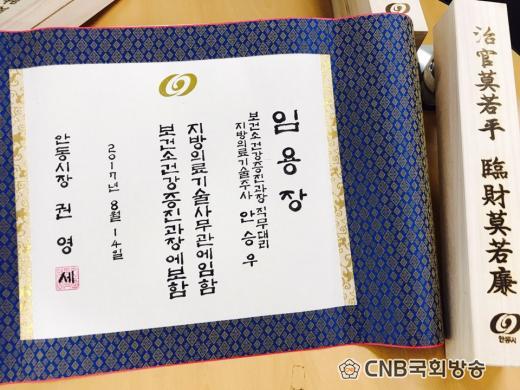 임용장
보건소건강증진과장 직무대리
지방의료기술주사 안승우
지방의료기술사무관에임함
보건소건강증진과장에보함
2017년 8월 14일
안동시장 권영세
治官莫若平 臨財莫若廉
안동시
CNB국회방송